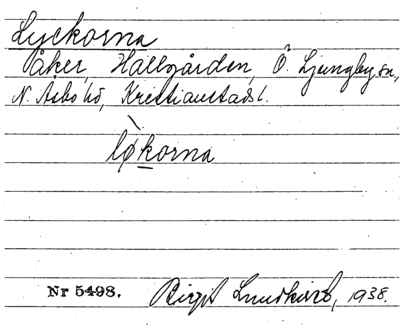 Lyckorna
Åker, Hallgården, Ö. Ljungby sn,
N. Åsbo hd, Kristianstads l.
lø̀korna
Nr 5498. Birgit Lundkvist, 1938.